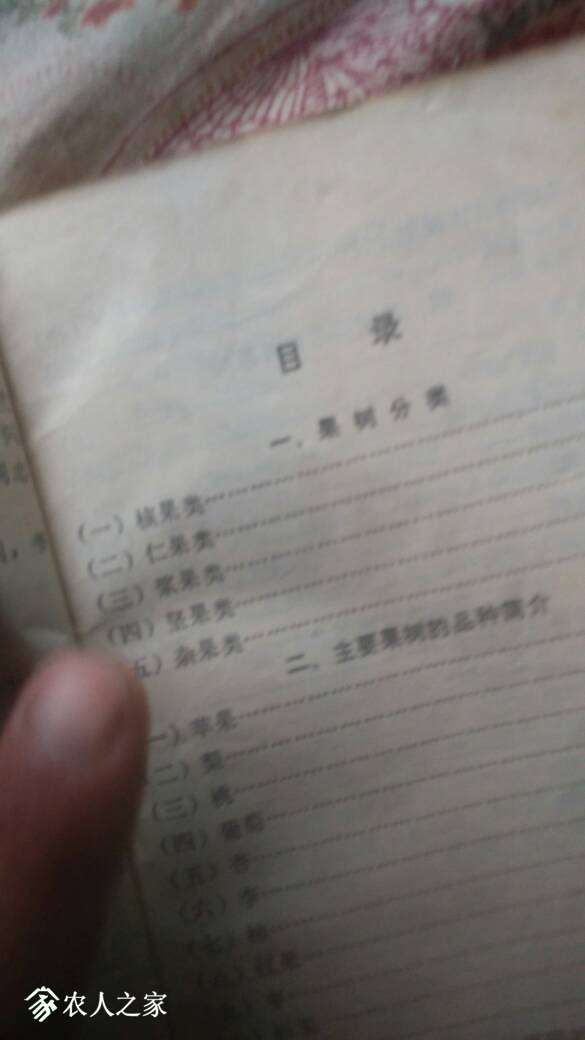 目 录
一、果树分类
（一）核果类
（二）仁果类
（三）浆果类
（四）坚果类
五）杂果类
二、主要果树的品种简介
一）苹果
（二）梨
（三）桃
（四）葡萄
（五）杏
（六）李
（七）
农人之家